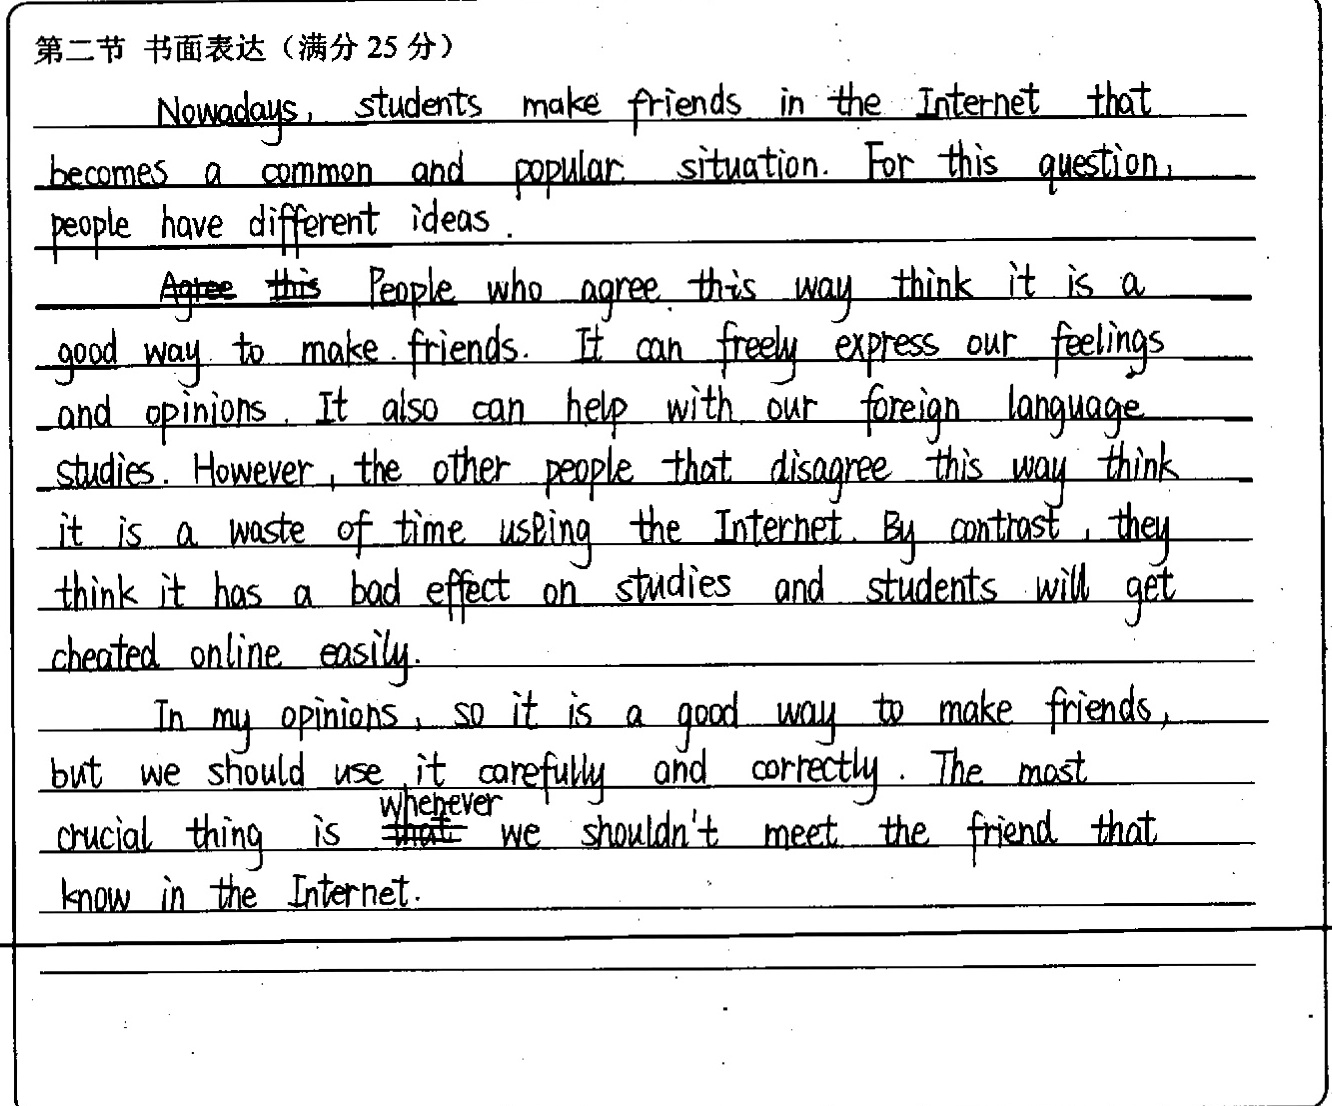 第二节 书面表达（满分 25 分）
Nowadays, students make friends in the Internet that
becomes a common and popular situation. For this question,
people have different ideas.
Agree this People who agree this way think it is a
good way to make friends. It can freely express our feelings
and opinions. It also can help with our foreign language
studies. However, the other people that disagree this way think
it is a waste of time using the Internet. By contrast, they
think it has a bad effect on studies and students will get
cheated online easily.
In my opinions, so it is a good way to make friends,
but we should use it carefully and correctly. The most
whenever
crucial thing is that we shouldn't meet the friend that
know in the Internet.